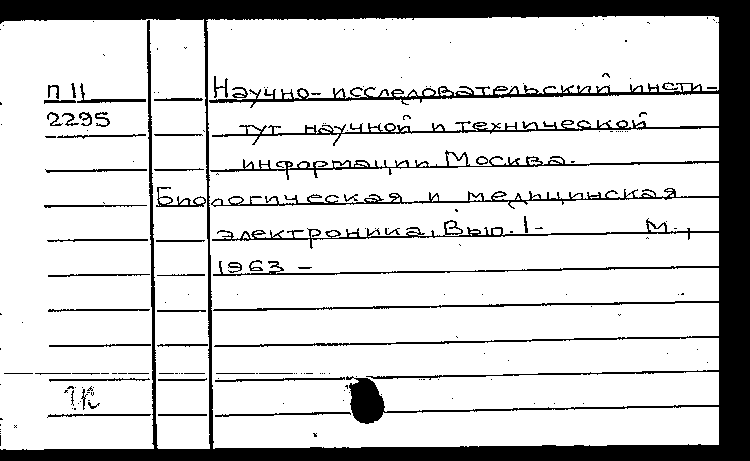 П 11 Научно-исследовательский инсти-
2295 тут научной и технической
информации. Москва.
Биологическая и медицинская
электроника. Вып. 1- М.,
1963 -
1К